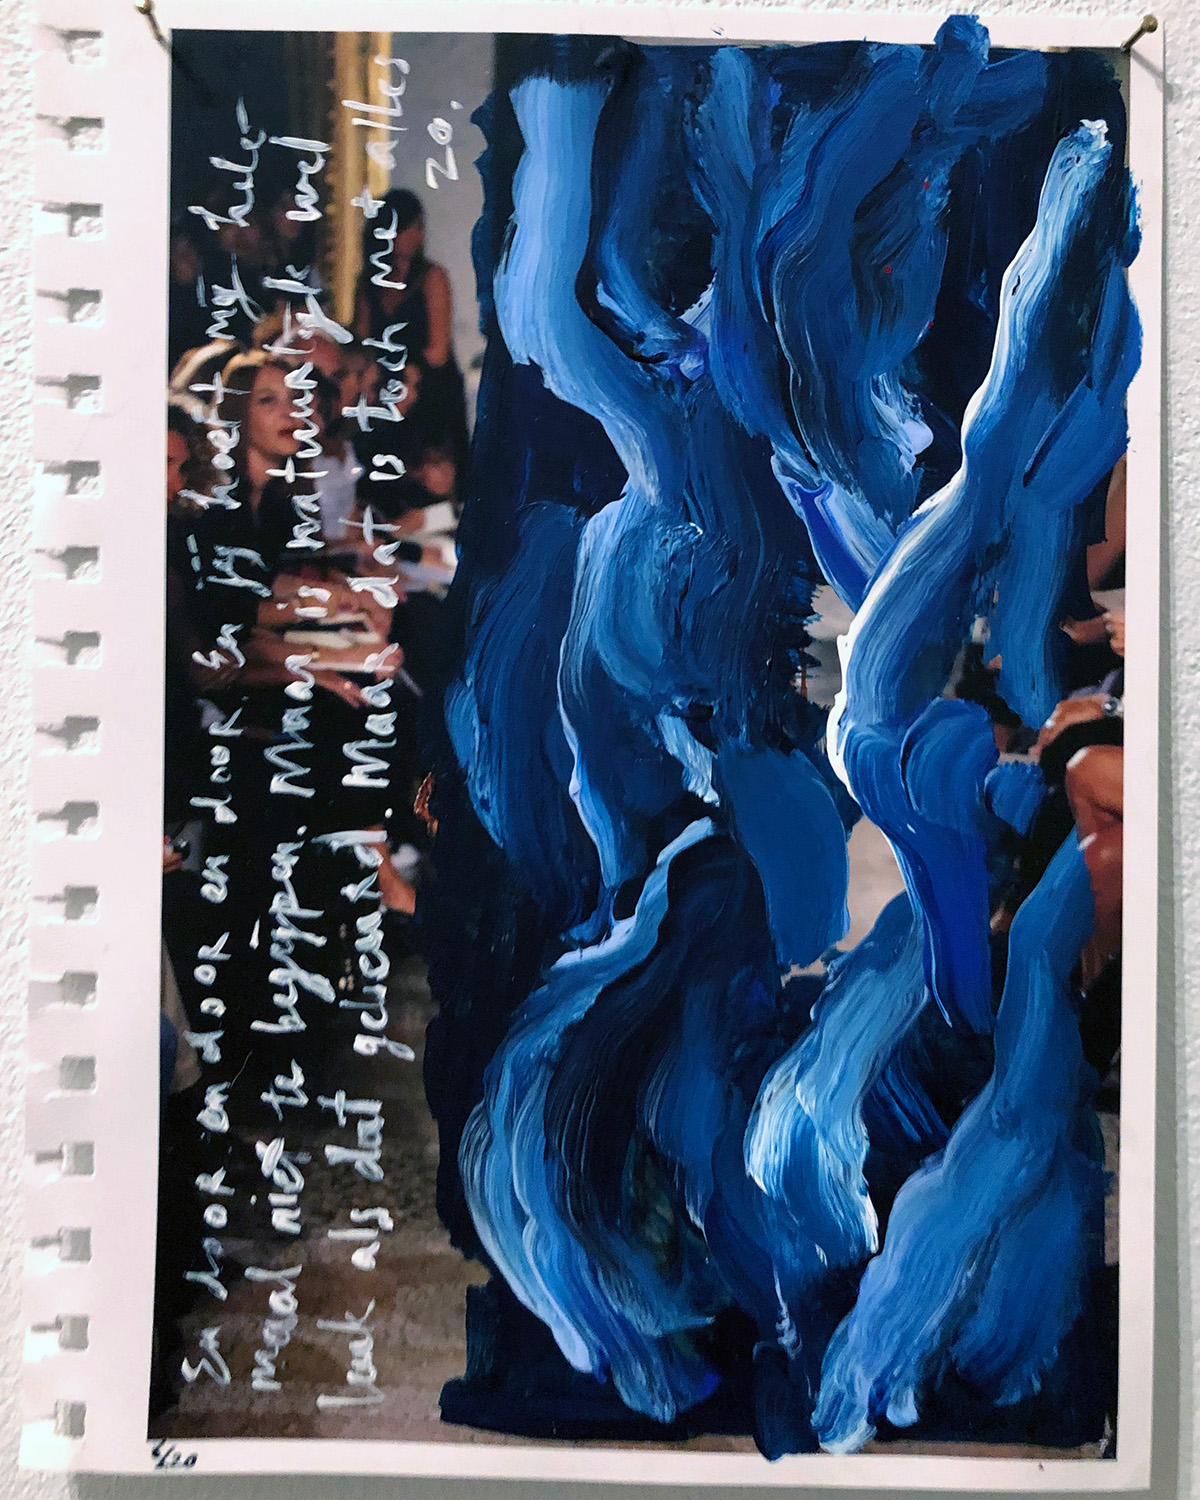 En door en door en door. En jij hoeft mij hele-
maal niet te begrijpen. Maar is natuurlijk wel
leuk als dat gebeurd. Maar dat is toch met alles
zo.